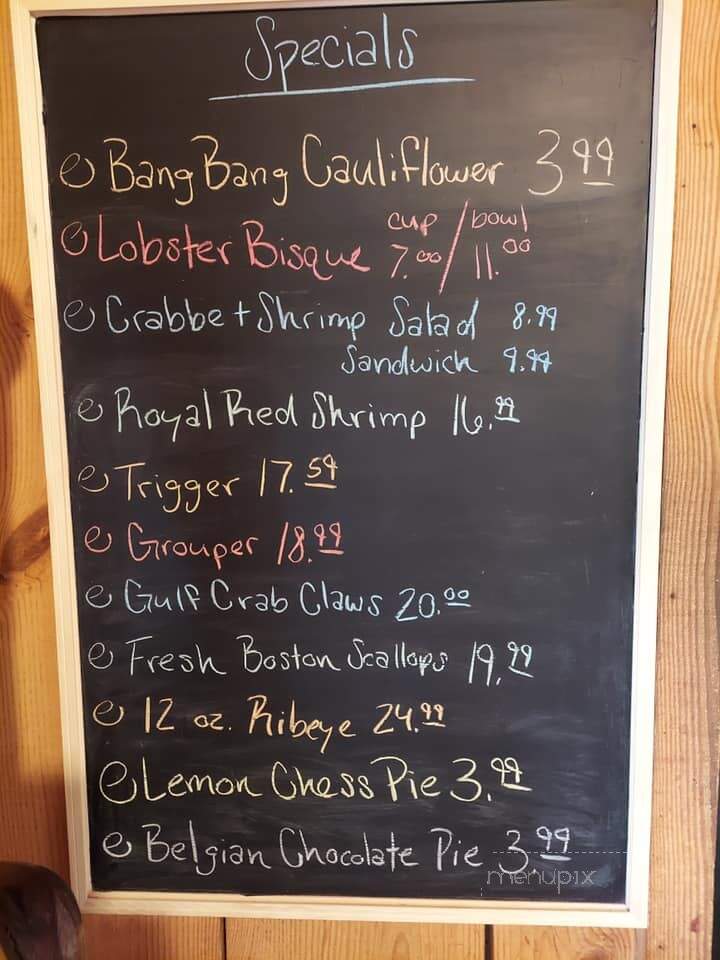 Specials
Bang Bang Cauliflower 3 99
Lobster Bisque cup 7.00 / bowl 11.00
Crabbe + Shrimp Salad 8.99
Sandwich 9.99
Royal Red Shrimp 16.99
Trigger 17.59
Grouper 18.99
Gulf Crab Claws 20.00
Fresh Boston Scallops 19.99
12 oz. Ribeye 24.99
Lemon Chess Pie 3.99
Belgian Chocolate Pie 3.99
menupix